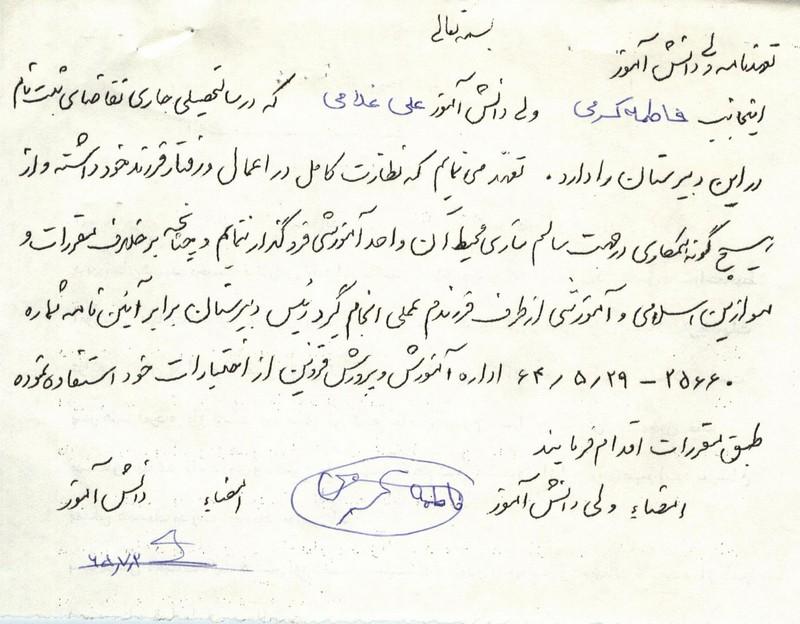 بسمه تعالی
تعهدنامه ولی دانش آموز
اینجانب فاطمه کرمی ولی دانش آموز علی غلامی که در سال تحصیلی جاری تقاضای ثبت نام
در این دبیرستان را دارد. تعهد می نمایم که نظارت کامل در اعمال و رفتار فرزند خود داشته و از
هیچ گونه همکاری در جهت سالم سازی محیط آن واحد آموزشی فروگذار ننمایم و چنانچه برخلاف مقررات و
موازین اسلامی و آموزشی از طرف فرزندم عملی انجام گیرد رئیس دبیرستان برابر آئین نامه شماره
۲۵۶۶۰ - ۶۴/۵/۲۹ اداره آموزش و پرورش قزوین از اختیارات خود استفاده نموده
طبق مقررات اقدام فرمایند
امضاء ولی دانش آموز فاطمه کرمی امضاء دانش آموز